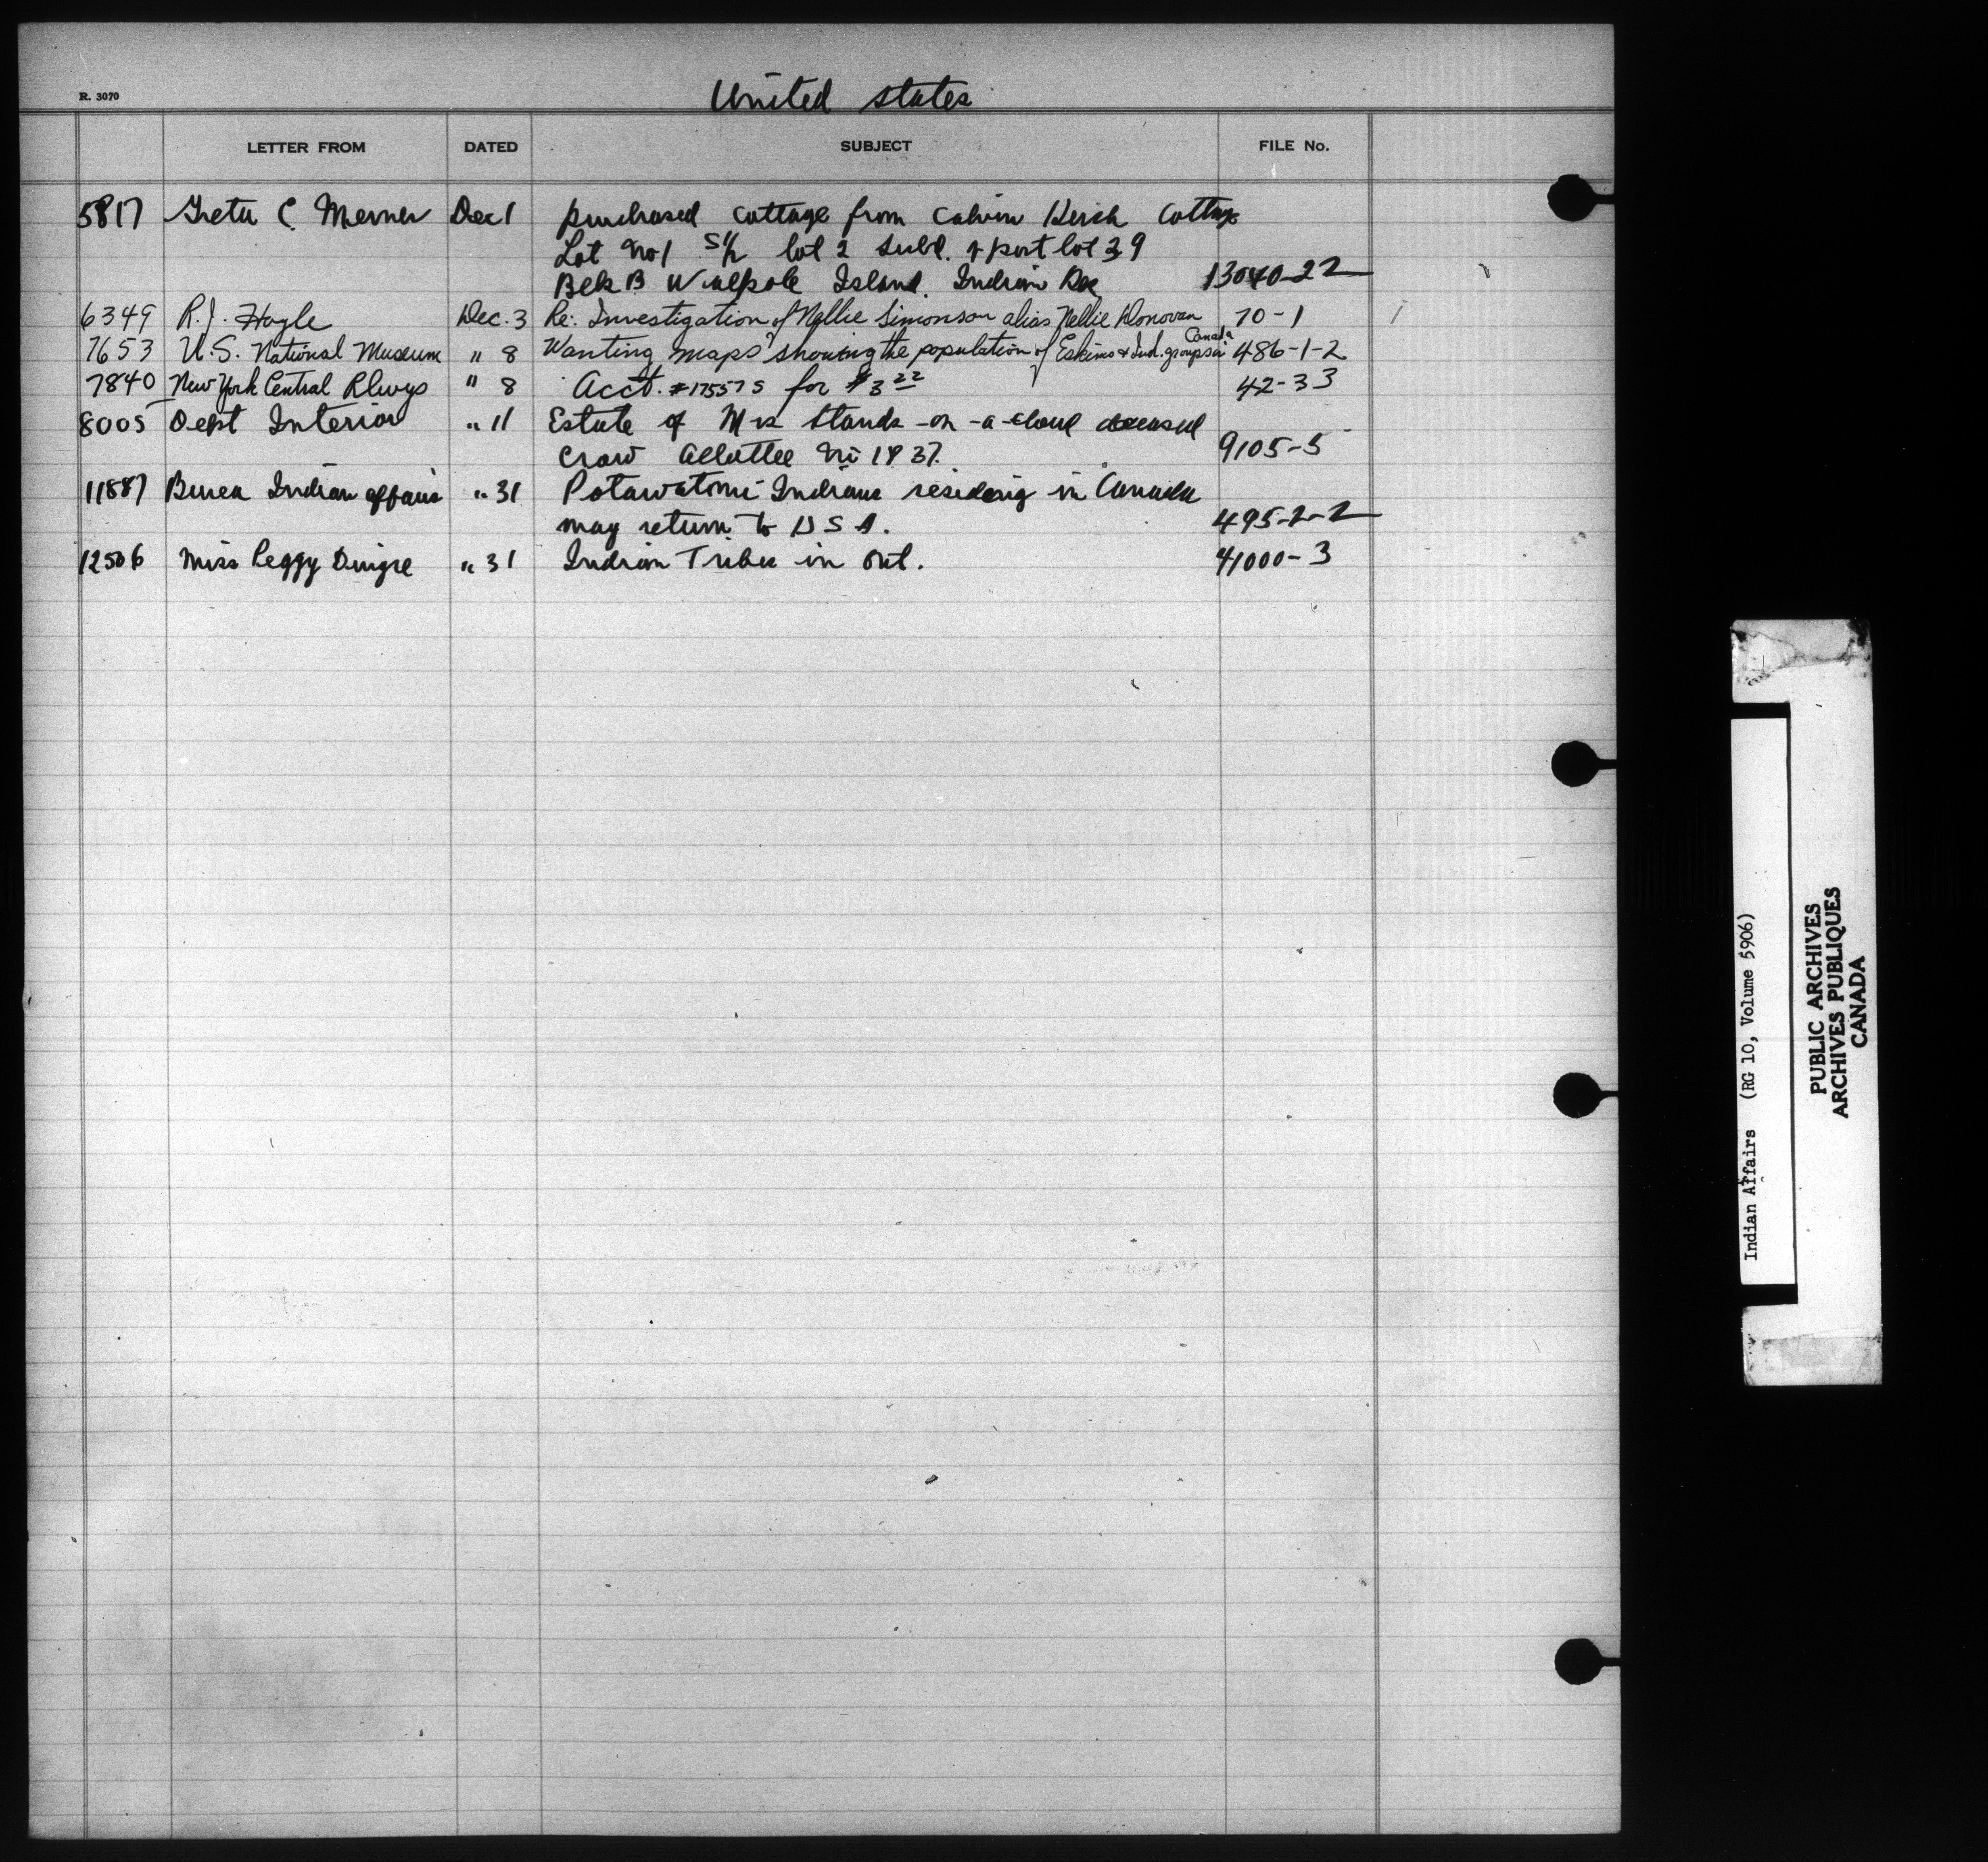 R. 3070
United States
LETTER FROM DATED SUBJECT FILE No.
5817 Greta C. Merner Dec 1 purchased cottage from Calvin Cottage
Lot No 1 S 1/2 lot 2 Subd. of part lot 39
Blk B Walpole Island. Indian Res 13040-22
6349 R.J. Hogle Dec. 3 Re: Investigation of Nellie Simonson alias Nellie Donovan 70-1
7653 U.S. National Museum " 8 Wanting maps showing the population of Eskimo & Ind. groups in Canada 486-1-2
7840 New York Central Rlwys " 8 Acct. #17557 S for $3 22 42-33
8005 Dept Interior " 11 Estate of Mrs Stands-on-a-cloud deceased
Crow Allottee No 1837. 9105-5
11887 Burea Indian affairs " 31 Potawatomi Indians residing in Canada
may return to U S A. 495-2-2
12506 Miss Peggy " 31 Indian Tribes in Ont. 41000-3
Indian Affairs (RG 10, Volume 5906)
PUBLIC ARCHIVES
ARCHIVES PUBLIQUES
CANADA